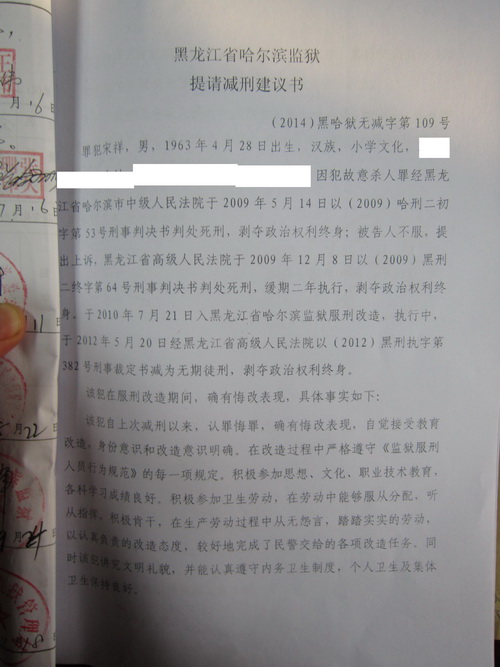 黑龙江省哈尔滨监狱
提请减刑建议书
（2014）黑哈狱无减字第 109 号
罪犯宋祥，男，1963 年 4 月 28 日出生，汉族，小学文化，
因犯故意杀人罪经黑龙
江省哈尔滨市中级人民法院于 2009 年 5 月 14 日以（2009）哈刑二初
字第 53 号刑事判决书判处死刑，剥夺政治权利终身；被告人不服，提
出上诉，黑龙江省高级人民法院于 2009 年 12 月 8 日以（2009）黑刑
二终字第 64 号刑事判决书判处死刑，缓期二年执行，剥夺政治权利终
身。于 2010 年 7 月 21 日入黑龙江省哈尔滨监狱服刑改造，执行中，
于 2012 年 5 月 20 日经黑龙江省高级人民法院以（2012）黑刑执字第
382 号刑事裁定书减为无期徒刑，剥夺政治权利终身。
该犯在服刑改造期间，确有悔改表现，具体事实如下：
该犯自上次减刑以来，认罪悔罪，确有悔改表现，自觉接受教育
改造，身份意识和改造意识明确。在改造过程中严格遵守《监狱服刑
人员行为规范》的每一项规定。积极参加思想、文化、职业技术教育，
各科学习成绩良好。积极参加卫生劳动，在劳动中能够服从分配，听
从指挥，积极肯干，在生产劳动过程中从无怨言，踏踏实实的劳动，
以认真负责的改造态度，较好地完成了民警交给的各项改造任务。同
时该犯讲究文明礼貌，并能认真遵守内务卫生制度，个人卫生及集体
卫生保持良好。
月 16 日
7 月 16 日
11 日
月 22 日
9 月 24 日
月 8 日